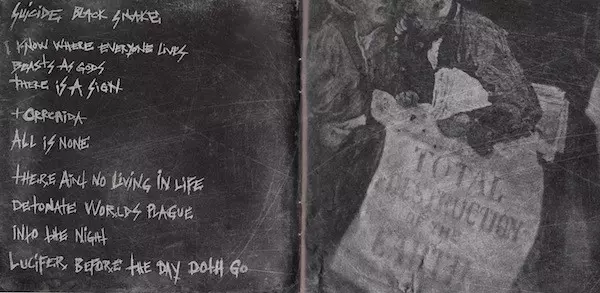 SUICIDE BLACK SNAKE
I KNOW WHERE EVERYONE LIVES
BEASTS AS GODS
THERE IS A SIGN
+ORRCHIDA
ALL IS NONE
THERE AINT NO LIVING IN LIFE
DETONATE WORLDS PLAGUE
INTO THE NIGHT
LUCIFER BEFORE THE DAY DOTH GO
TOTAL
DESTRUCTION
OF THE
EARTH